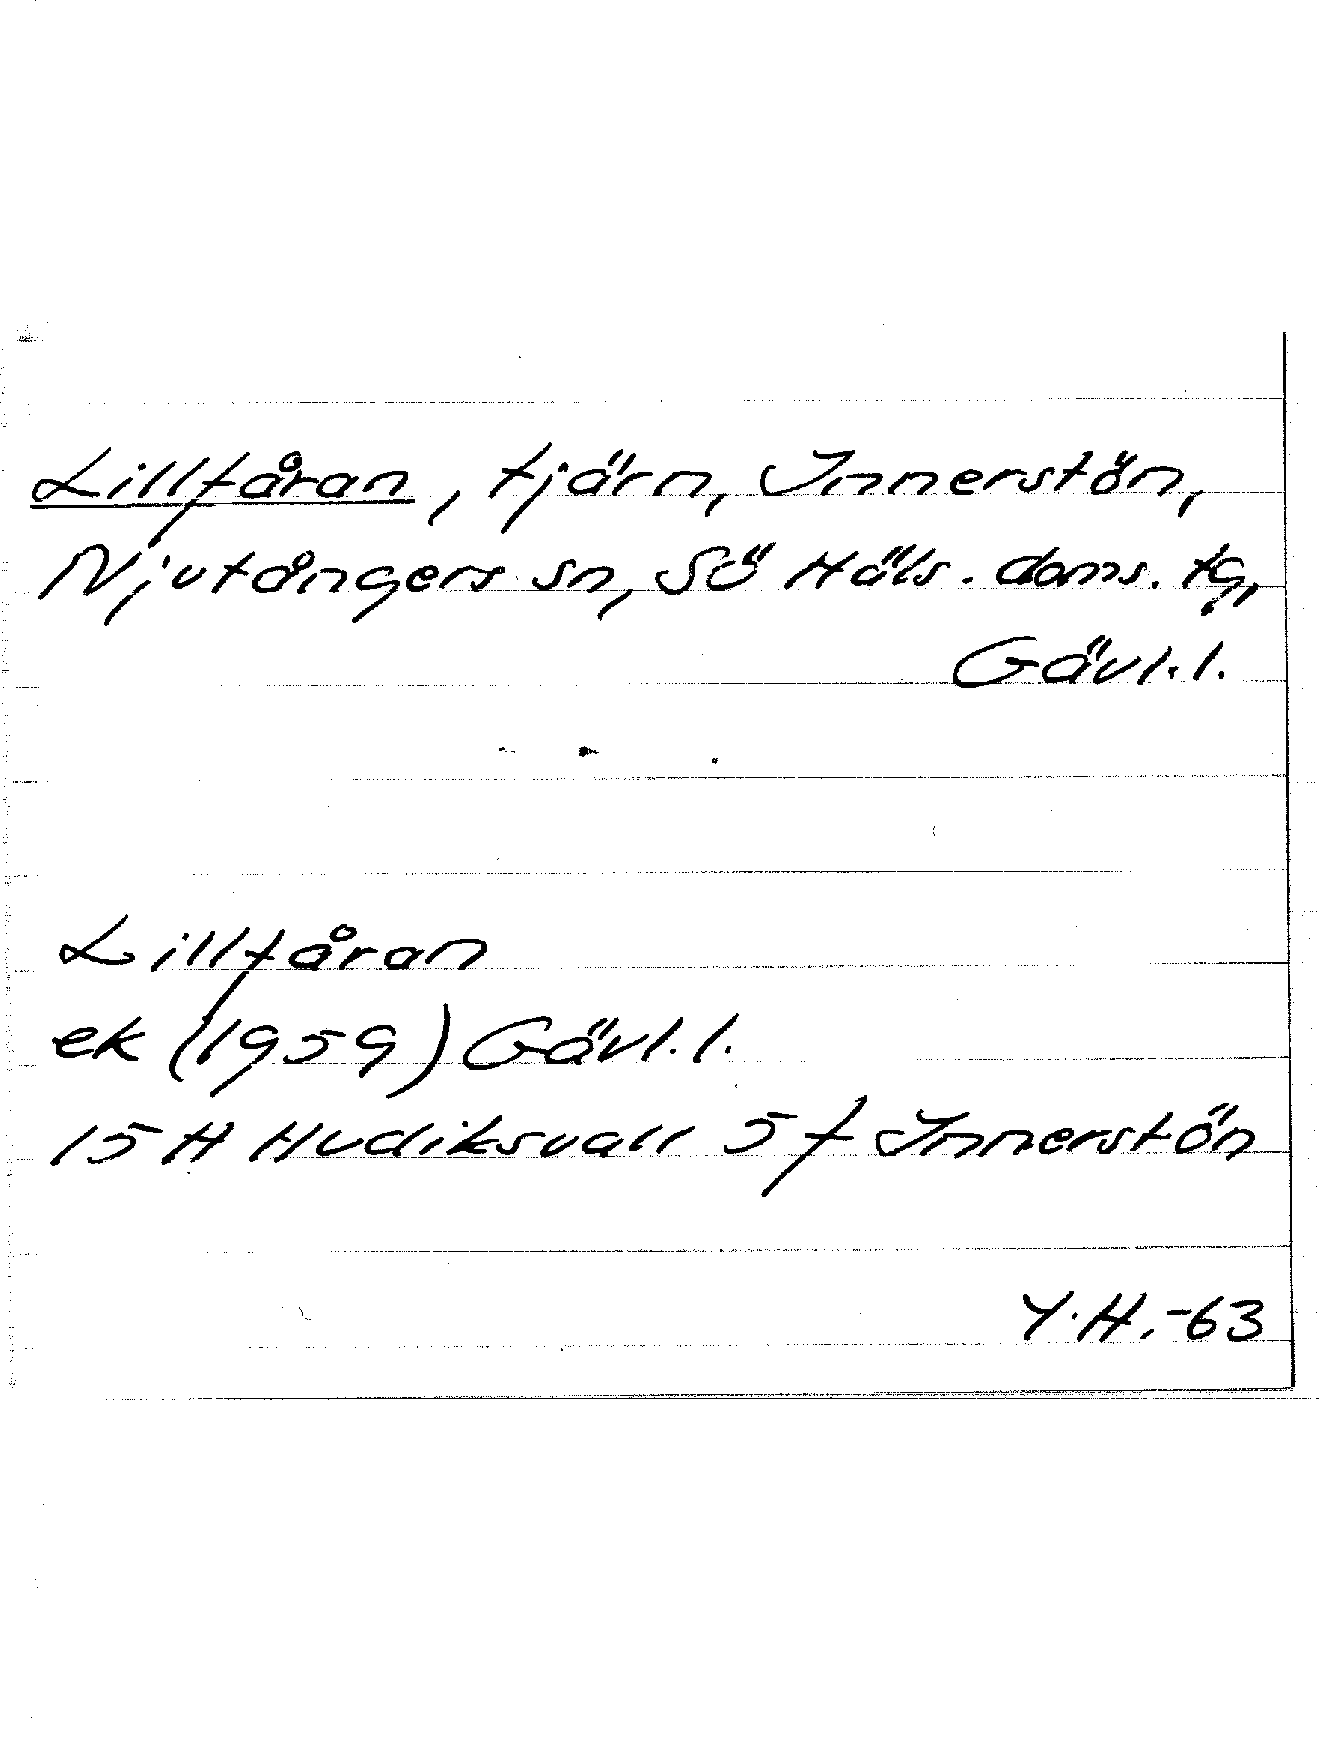 Lillfåran, tjärn, Innerstön,
Njutångers sn, Sö Häls. doms. tg,
Gävl.l.
Lillfåran
ek (1959) Gävl.l.
15 H Hudiksvall 5 f Innerstön
Y.H.-63